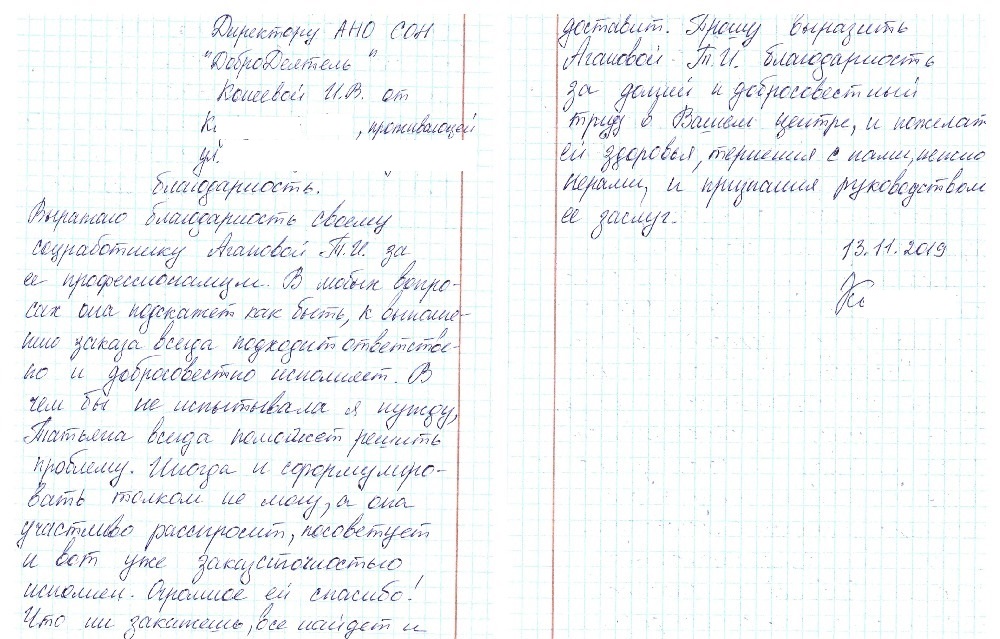 Директору АНО СОН
"ДоброДеятель"
Кошевой И.В. от
К. , проживающей
ул.
благодарность.
Выражаю благодарность своему
соцработнику Агаповой Т.И. за
её профессионализм. В любых вопро-
сах она подскажет как быть, к выполне-
нию заказа всегда подходит ответствен-
но и добросовестно исполняет. В
чем бы не испытывала я нужду,
Татьяна всегда поможет решить
проблему. Иногда и сформулиро-
вать толком не могу, а она
участливо расспросит, посоветует
и вот уже заказ с точностью
исполнен. Огромное ей спасибо!
Что ни закажешь, все найдет и
доставит. Прошу выразить
Агаповой Т.И. благодарность
за долгий и добросовестный
труд в Вашем центре, и пожелать
ей здоровья, терпения с нами, пенсио
нерами, и признания руководством
ее заслуг.
13.11.2019